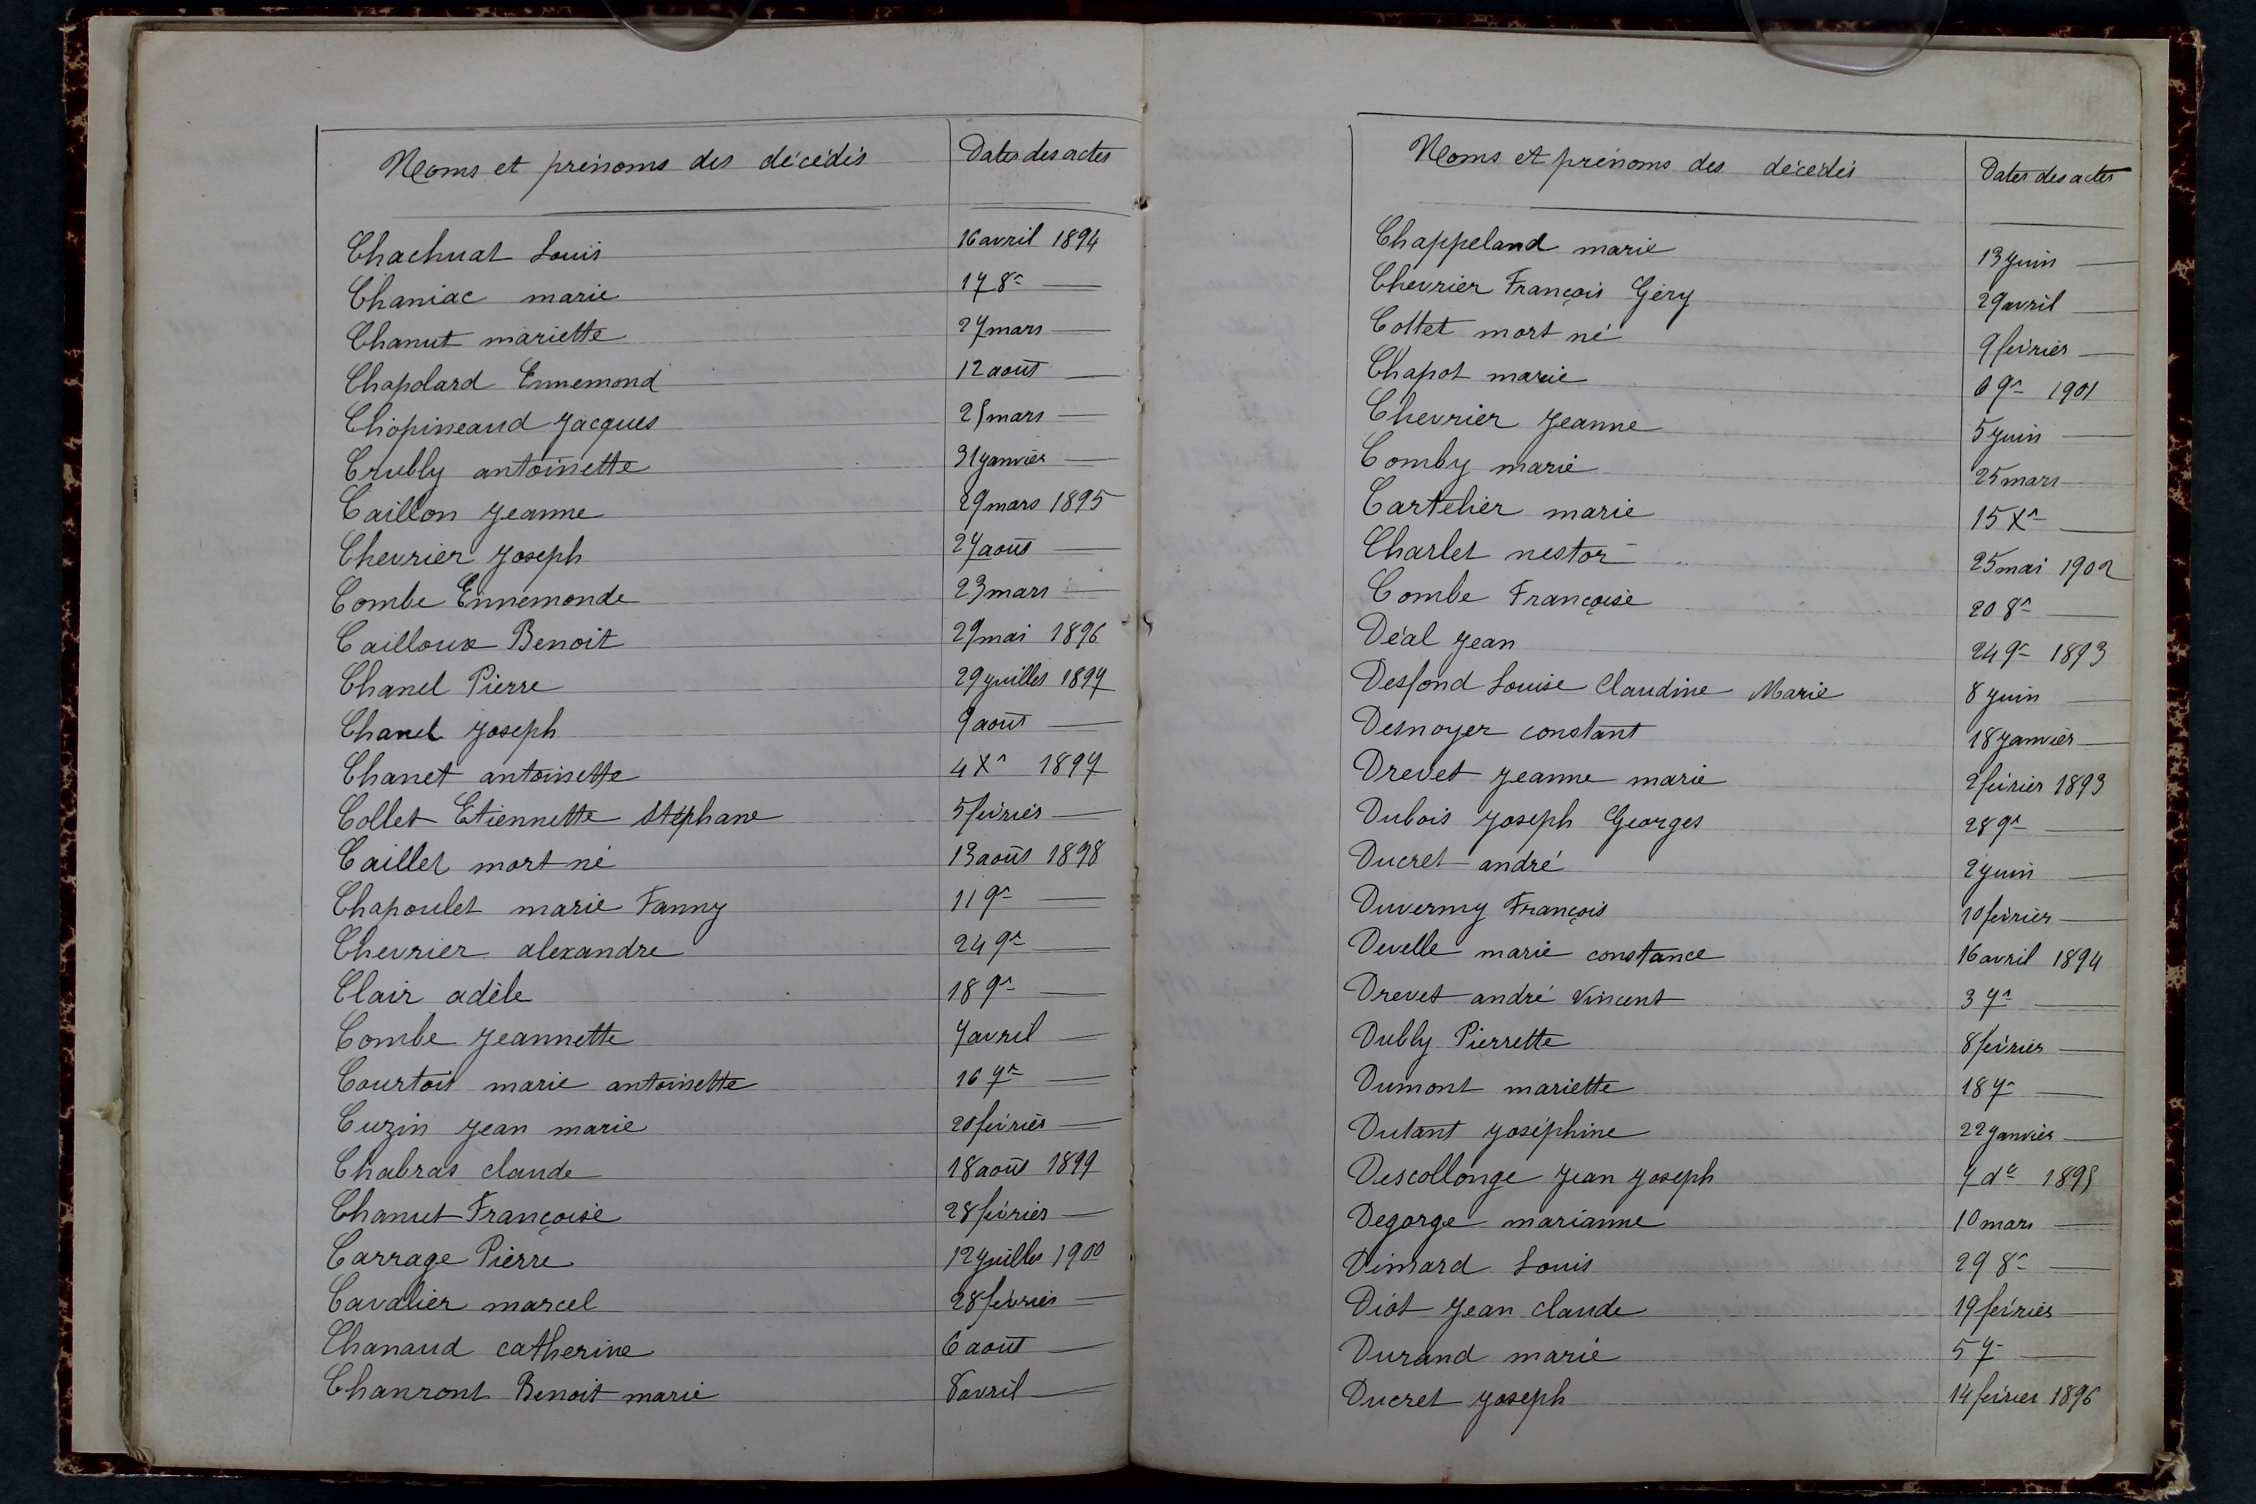 Noms et prénoms des décédés Dates des actes
Chachuat Louis 16 avril 1894
Chaniac marie 17 8e —
Chanut mariette 27 mars —
Chapolard Ennemond 12 août —
Chopineaud Jacques 25 mars —
Crubly antoinette 31 janvier —
Caillon Jeanne 29 mars 1895
Chevrier Joseph 27 août —
Combe Ennemonde 23 mars —
Cailloux Benoit 29 mai 1896
Chanel Pierre 29 juillet 1897
Chanel Joseph 9 août —
Chanet antoinette 4 Xre 1897
Collet Etiennette Stéphane 5 février —
Caillet mort né 13 août 1898
Chapoulet marie Fanny 11 9re —
Chevrier alexandre 24 9re —
Clair adèle 18 9re —
Combe Jeannette 7 avril —
Courtois marie antoinette 16 7re —
Cuzin Jean marie 20 février —
Chabras claude 18 août 1899
Chanut Françoise 28 février —
Carrage Pierre 12 juillet 1900
Cavalier marcel 28 février —
Chanaud catherine 6 août —
Chanront Benoit marie 8 avril —
Noms et prénoms des décédés Dates des actes
Chappeland marie 13 juin —
Chevrier François Géry 29 avril —
Cottet mort né 9 février —
Chapot marie 6 9re 1901
Chevrier Jeanne 5 juin —
Comby marie 25 mars —
Cartelier marie 15 Xre —
Charlet nestor 25 mai 1902
Combe Françoise 20 8re —
Déal Jean 24 9re 1893
Desfond Louise Claudine Marie 8 juin —
Desnoyer constant 18 janvier —
Drevet Jeanne marie 2 février 1893
Dubois Joseph Georges 28 9re —
Ducret andré 2 juin —
Duvermy François 10 février —
Develle marie constance 16 avril 1894
Drevet andré Vincent 3 7re —
Dubly Pierrette 8 février —
Dumont mariette 18 7re —
Dutant Joséphine 22 janvier —
Descollonge Jean Joseph 7 do 1895
Degorge marianne 10 mars —
Dimard Louis 29 8re —
Diot Jean claude 19 février —
Durand marie 5 7re —
Ducret Joseph 14 février 1896